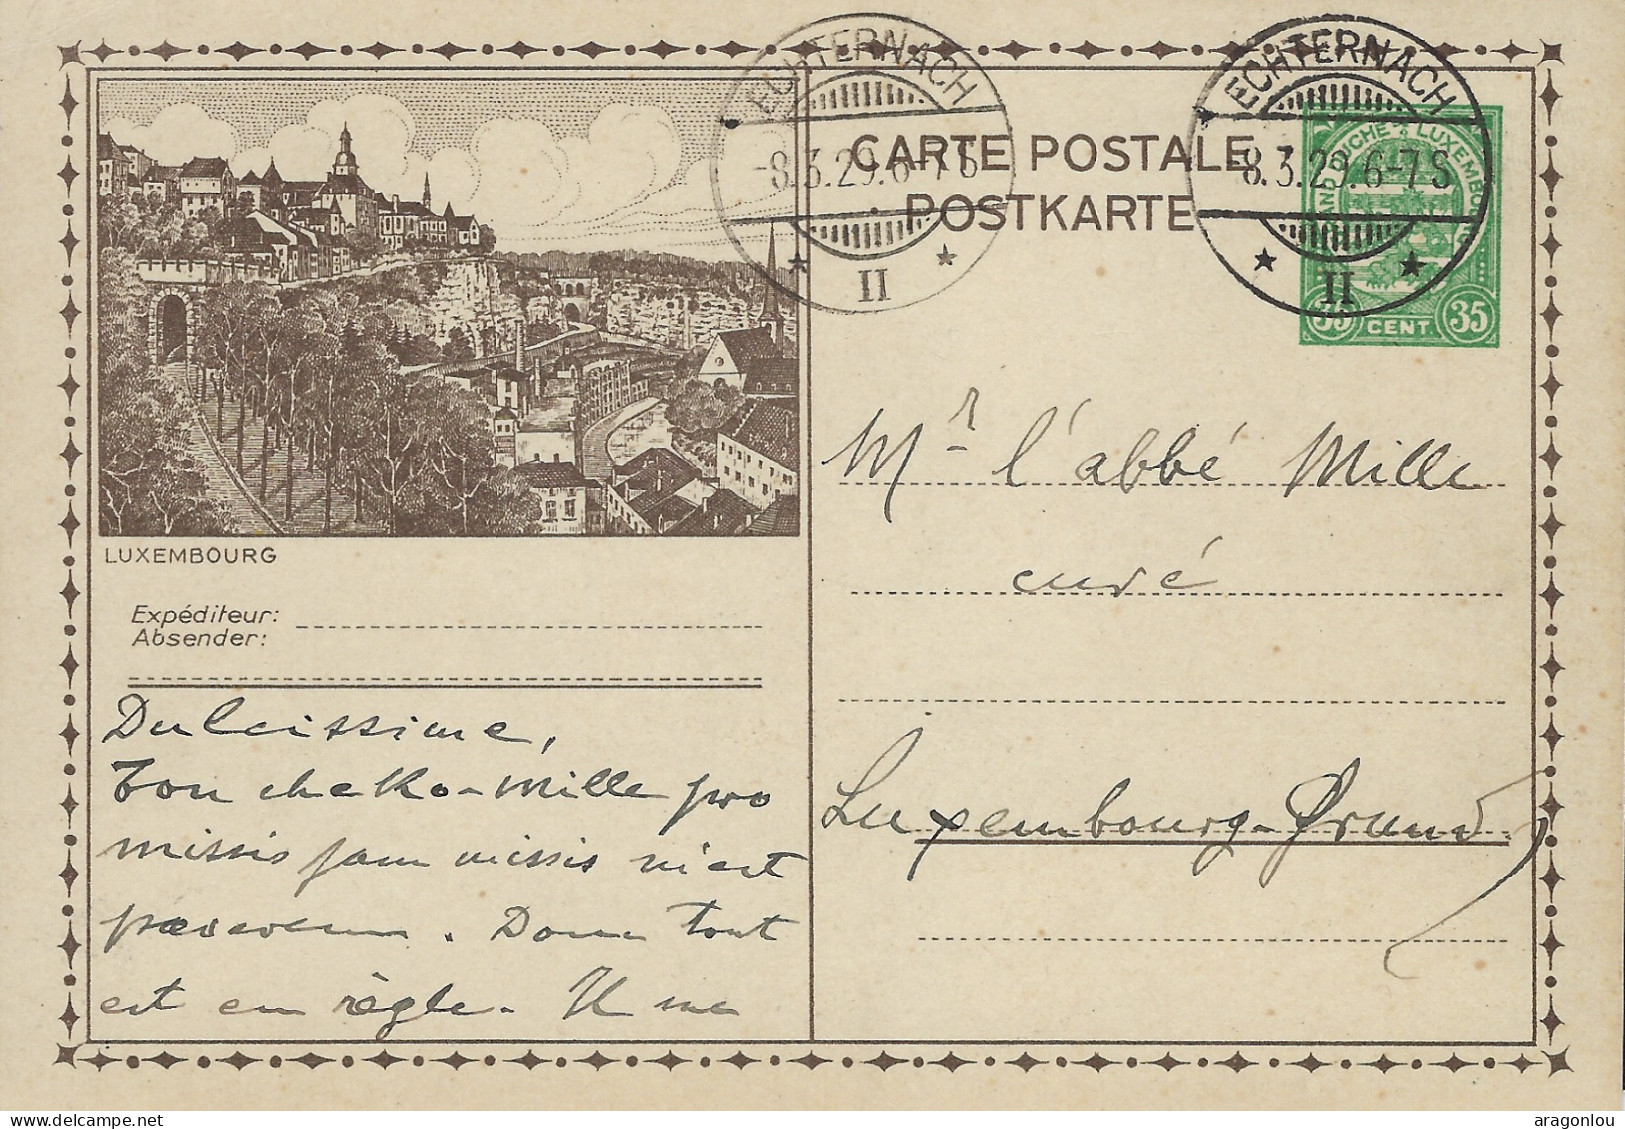 ECHTERNACH
-8.3.29.6-7S
II
ECHTERNACH
-8.3.29.6-7S
II
CARTE POSTALE
POSTKARTE
GRAND DUCHÉ DE LUXEMBOURG
35 CENT. 35
LUXEMBOURG
Expéditeur:
Absender:
Mr l'abbé Mille
curé
Luxembourg-Grund
Dulcissime,
Ton cheko-Mille pro
missis jam missis m'est
parvenu. Donc tout
est en règle. Il me
delcampe.net
aragonlou